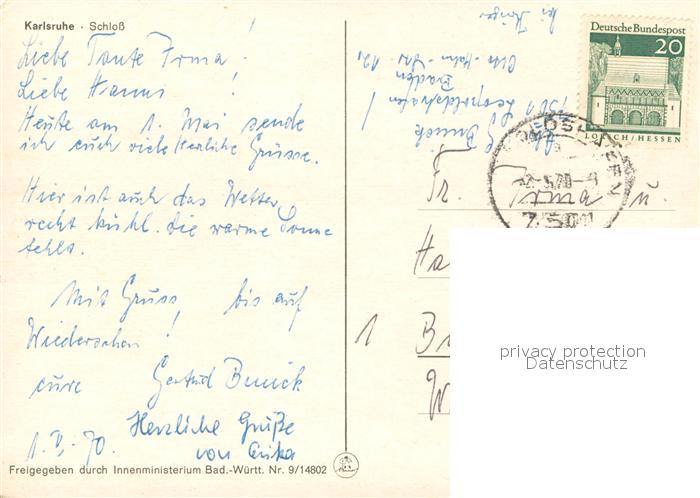 Karlsruhe · Schloß
Liebe Tante Irma!
Liebe Hanni!
Heute am 1. Mai sende
ich euch viele herzliche Grüsse.
Hier ist auch das Wetter
recht kühl. die warme Sonne
fehlt.
Mit Gruss, bis auf
Wiedersehen!
eure Gertrud Bunick
1.V.70. Herzliche Grüße
von Erika
Freigegeben durch Innenministerium Bad.-Württ. Nr. 9/14802
Deutsche Bundespost
20
LORSCH/HESSEN
bei Krüger
Otto-Hahn-Str.
Baden
7501 Leopoldshafen
Abs. G. Bunick
-2.-5.70-9
7501
Fr. Irma u.
Ha
1 B
W
privacy protection
Datenschutz